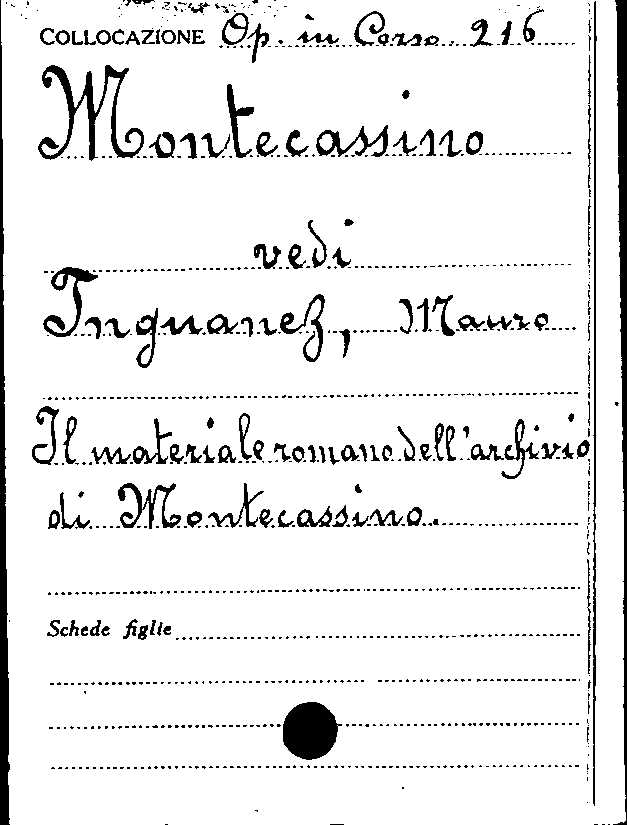 COLLOCAZIONE Op. in Corso 216
Montecassino
vedi
Inguanez, Mauro
Il materiale romano dell'archivio
di Montecassino.
Schede figlie